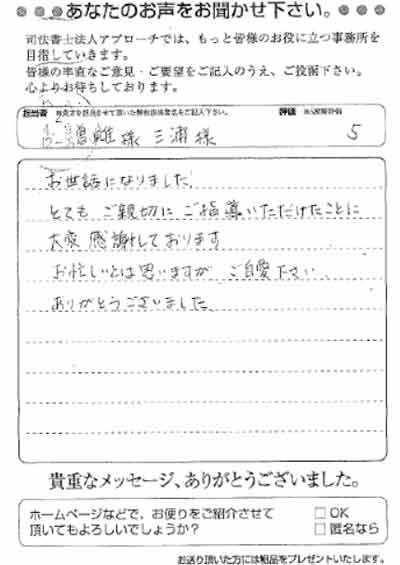 あなたのお声をお聞かせ下さい。
司法書士法人アプローチでは、もっと皆様のお役に立つ事務所を
目指していきます。
皆様の率直なご意見・ご要望をご記入のうえ、ご投函下さい。
心よりお待ちしております。
担当者 評価 ※5段階評価
様 三浦様 5
お世話になりました
とても ご親切に ご指導いただけたことに
大変 感謝しております
お忙しいとは思いますが ご自愛下さい。
ありがとうございました
貴重なメッセージ、ありがとうございました。
ホームページなどで、お便りをご紹介させて
頂いてもよろしいでしょうか?
□ OK
□ 匿名なら
お送り頂いた方には粗品をプレゼントいたします。